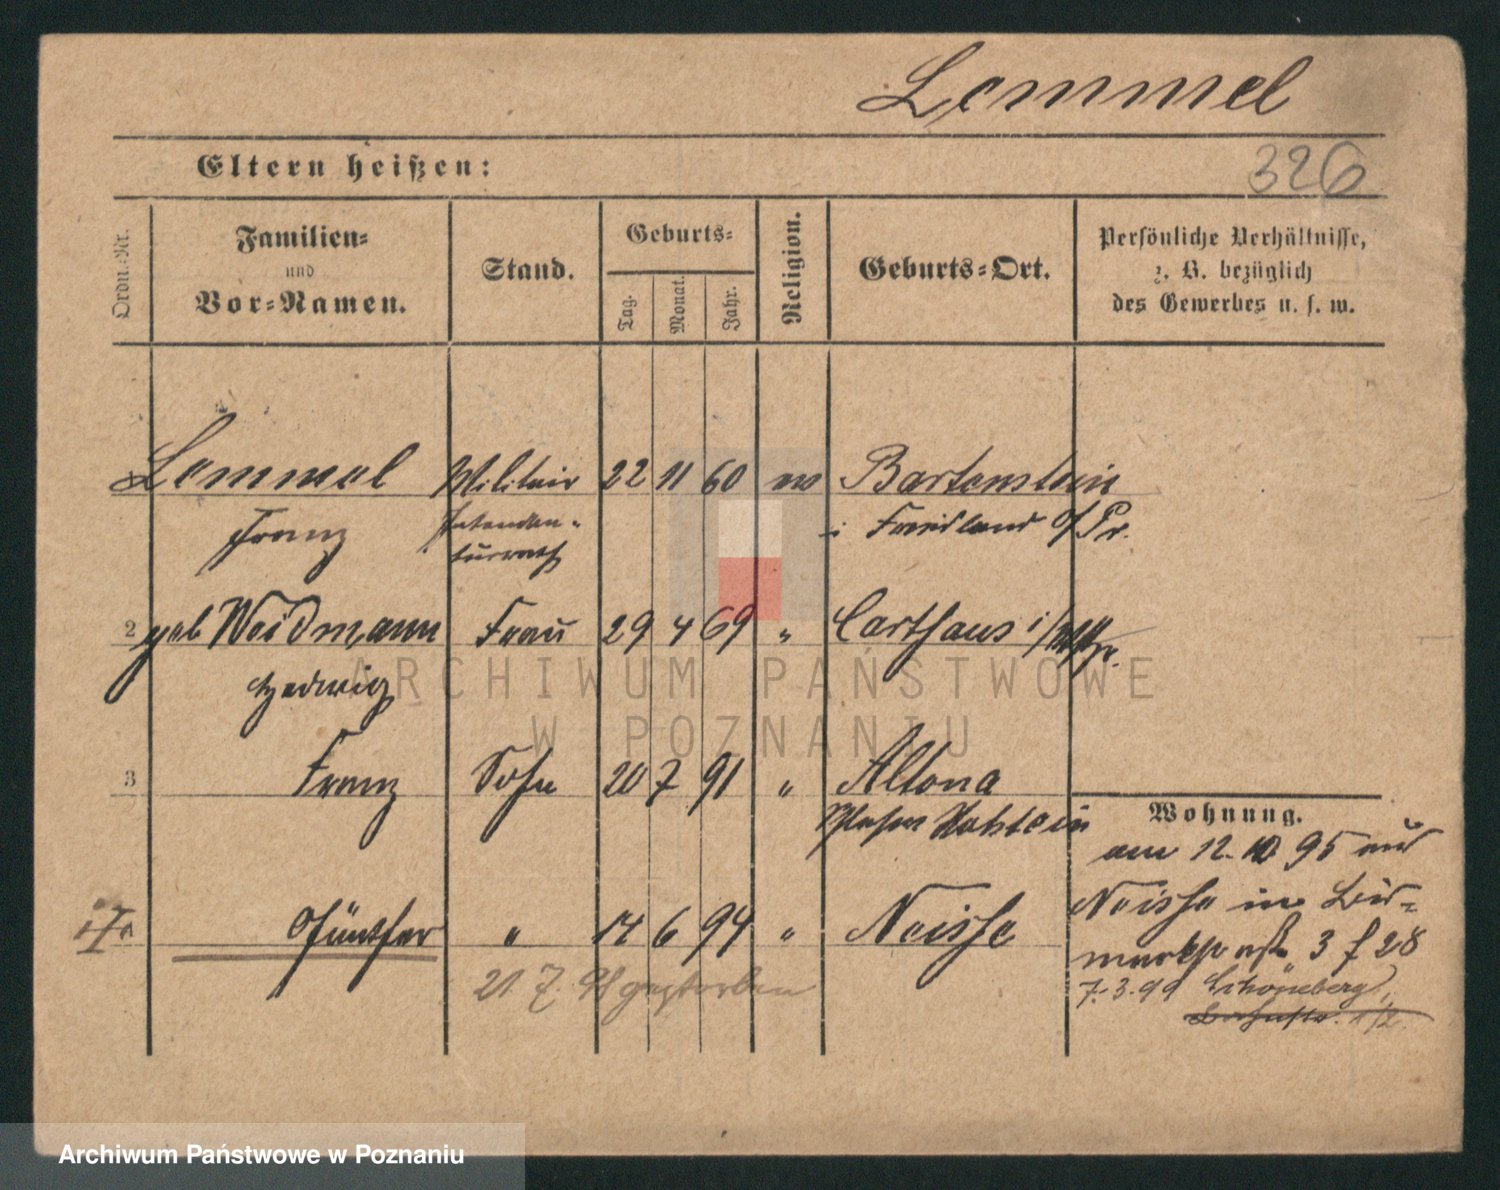 Lemmel
Eltern heißen:
326
Ordn.-Nr.
Familien-
und
Vor-Namen.
Stand.
Geburts-
Tag.
Monat.
Jahr.
Religion.
Geburts-Ort.
Persönliche Verhältnisse,
z. B. bezüglich
des Gewerbes u. s. w.
Lemmel Militair 22 11 60 ev Bartenstein
Franz Intendan-
turrath
i Friedland O/Pr.
2 geb Weidmann Frau 29 4 69 " Carthaus i/W/Pr.
Hedwig
3 Franz Sohn 20 7 91 " Altona
Holstein
Wohnung.
am 12. 10 95 aus
Günther " 14 6 94 " Neisse
Neisse in Bis-
markstraße 3 f 28
21. 7. 98 gestorben
7. 3. 99 Schöneberg,
1/2.
ARCHIWUM PAŃSTWOWE
W POZNANIU
Archiwum Państwowe w Poznaniu